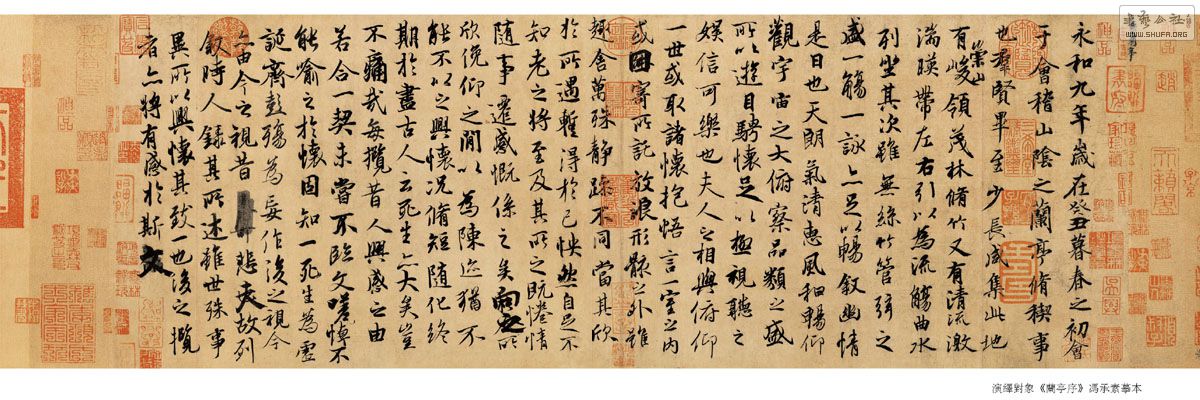 永和九年歲在癸丑暮春之初會
于會稽山陰之蘭亭脩稧事
也羣賢畢至少長咸集此地
有崇山峻領茂林脩竹又有清流激
湍暎帶左右引以為流觴曲水
列坐其次雖無絲竹管弦之
盛一觴一詠亦足以暢叙幽情
是日也天朗氣清惠風和暢仰
觀宇宙之大俯察品類之盛
所以遊目騁懷足以極視聽之
娛信可樂也夫人之相與俯仰
一世或取諸懷抱悟言一室之內
或因寄所託放浪形骸之外雖
趣舍萬殊靜躁不同當其欣
於所遇蹔得於己怏然自足不
知老之將至及其所之既惓情
隨事遷感慨係之矣向之所
欣俛仰之閒以為陳迹猶不
能不以之興懷況脩短隨化終
期於盡古人云死生亦大矣豈
不痛哉每攬昔人興感之由
若合一契未嘗不臨文嗟悼不
能喻之於懷固知一死生為虛
誕齊彭殤為妄作後之視今
亦由今之視昔悲夫故列
叙時人錄其所述雖世殊事
異所以興懷其致一也後之攬
者亦將有感於斯文
WWW.SHUFA.ORG
演繹對象《蘭亭序》馮承素摹本